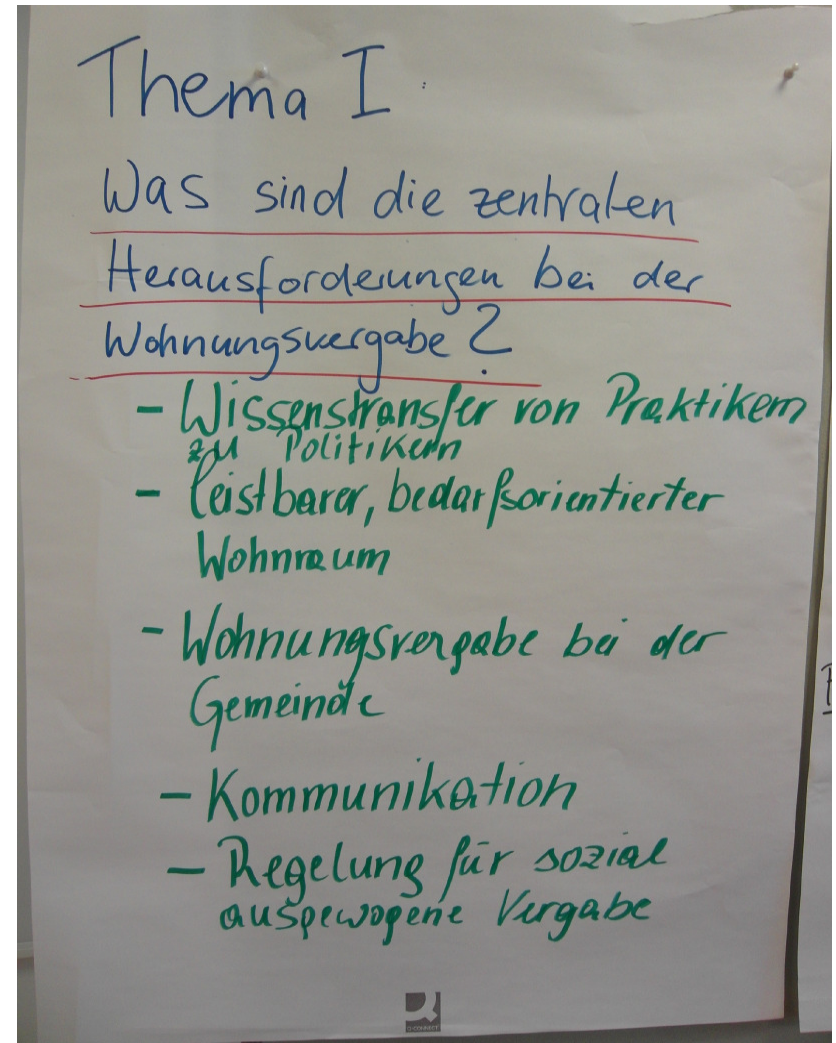 Thema I
Was sind die zentralen
Herausforderungen bei der
Wohnungsvergabe?
- Wissenstransfer von Praktikern
zu Politikern
- leistbarer, bedarfsorientierter
Wohnraum
- Wohnungsvergabe bei der
Gemeinde
- Kommunikation
- Regelung für sozial
ausgewogene Vergabe
Q-CONNECT